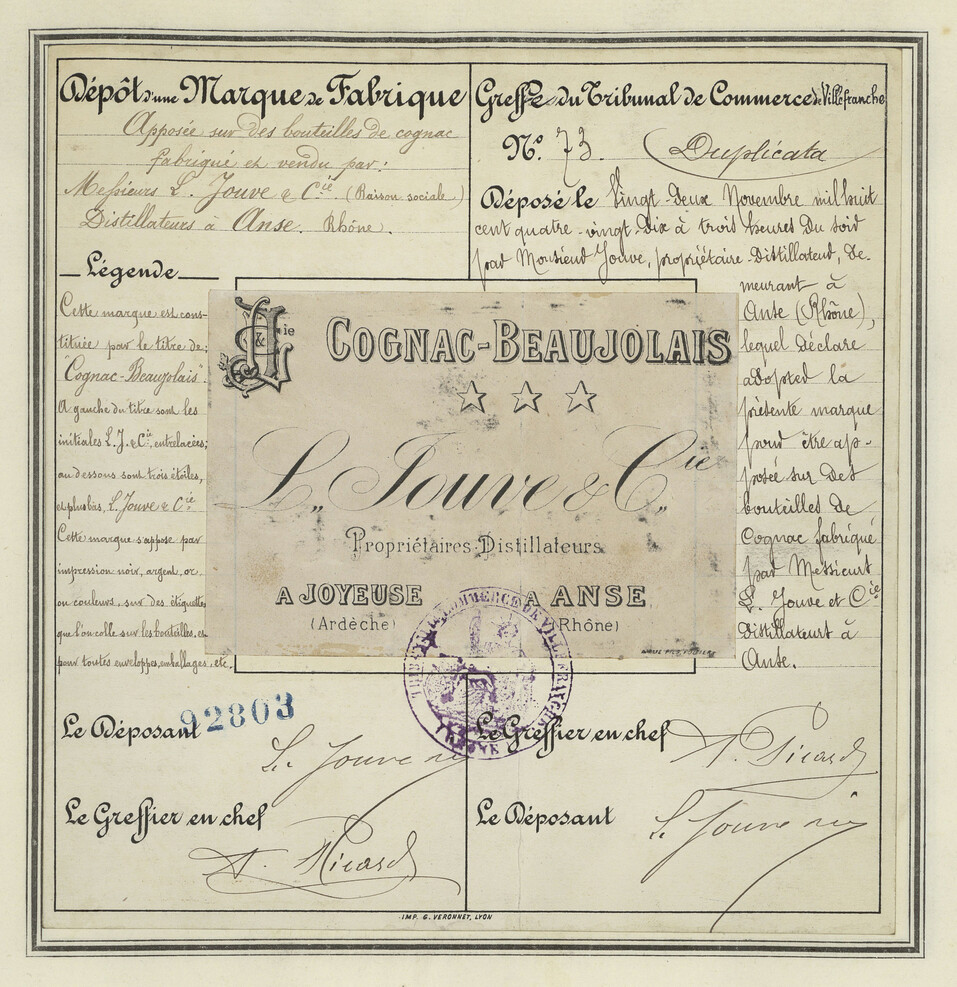 Dépôt d'une Marque de Fabrique
Apposée sur des bouteilles de cognac
fabriqué et vendu par :
Messieurs L. Jouve & Cie (Raison sociale)
Distillateurs à Anse. Rhône.
Légende
Cette marque est cons-
tituée par le titre de;
"Cognac-Beaujolais".
A gauche du titre sont les
initiales L. J. & Cie, entrelacées;
au dessous sont trois étoiles,
et plus bas, L. Jouve & Cie
Cette marque s'appose par
impression noir, argent, or
ou couleurs, sur des étiquettes
que l'on colle sur les bouteilles, et
pour toutes enveloppes, emballages, etc.
Greffe du Tribunal de Commerce de Villefranche
No. 73. Duplicata
Déposé le Vingt-deux Novembre mil huit
cent quatre-vingt-dix à trois heures du soir
par Monsieur Jouve, propriétaire-Distillateur, de-
meurant à
Anse (Rhône),
lequel déclare
adopter la
présente marque
pour être ap-
posée sur des
bouteilles de
Cognac fabriqué
par Messieurs
L. Jouve et Cie
Distillateurs à
Anse.
L J & Cie
COGNAC-BEAUJOLAIS
L. Jouve & Cie
Propriétaires-Distillateurs
A JOYEUSE A ANSE
(Ardèche) (Rhône)
TRIBUNAL DE COMMERCE DE VILLEFRANCHE
RHONE
92803
Le Déposant
L. Jouve
Le Greffier en chef
A. Picard
Le Greffier en chef
A. Picard
Le Déposant
L. Jouve
IMP. G. VERONNET, LYON